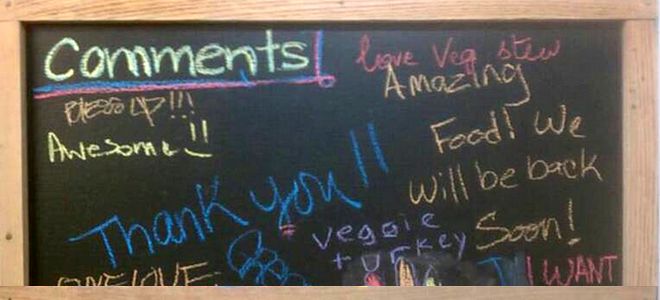 Comments!
love Veg stew
Amazing
Food! We
will be back
Soon!
Awesome!!
Thank you!!
veggie
turkey
ONE LOVE
I WANT